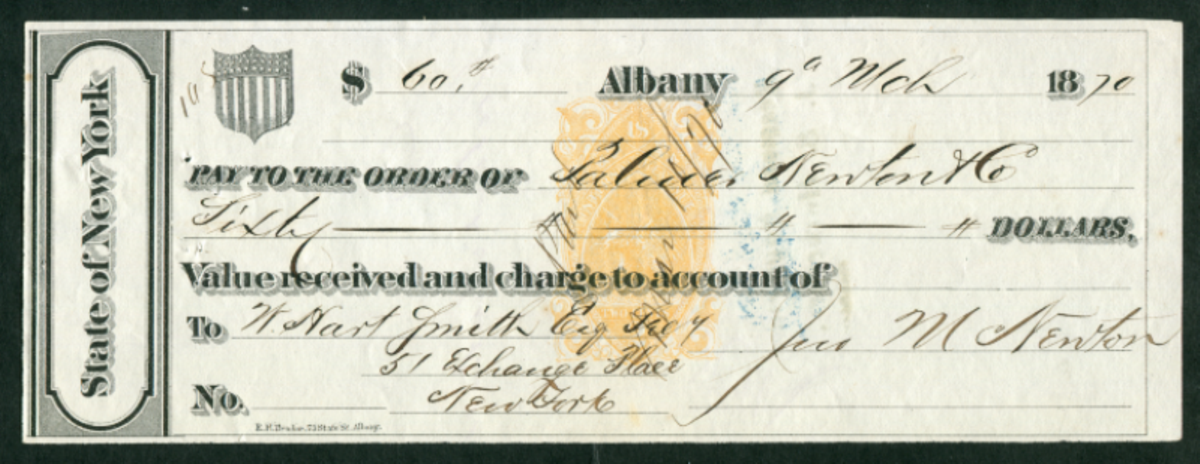 State of New York
$ 60. Albany 9 Mch 1870
PAY TO THE ORDER OF Palmer Newton & Co
Sixty DOLLARS,
Value received and charge to account of
To W. Hart Smith Esq
51 Exchange Place
New York
Jno M Newton
No.
73 State St. Albany.